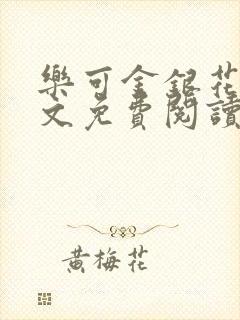 樂可金銀花
文免費閱讀
黃梅花